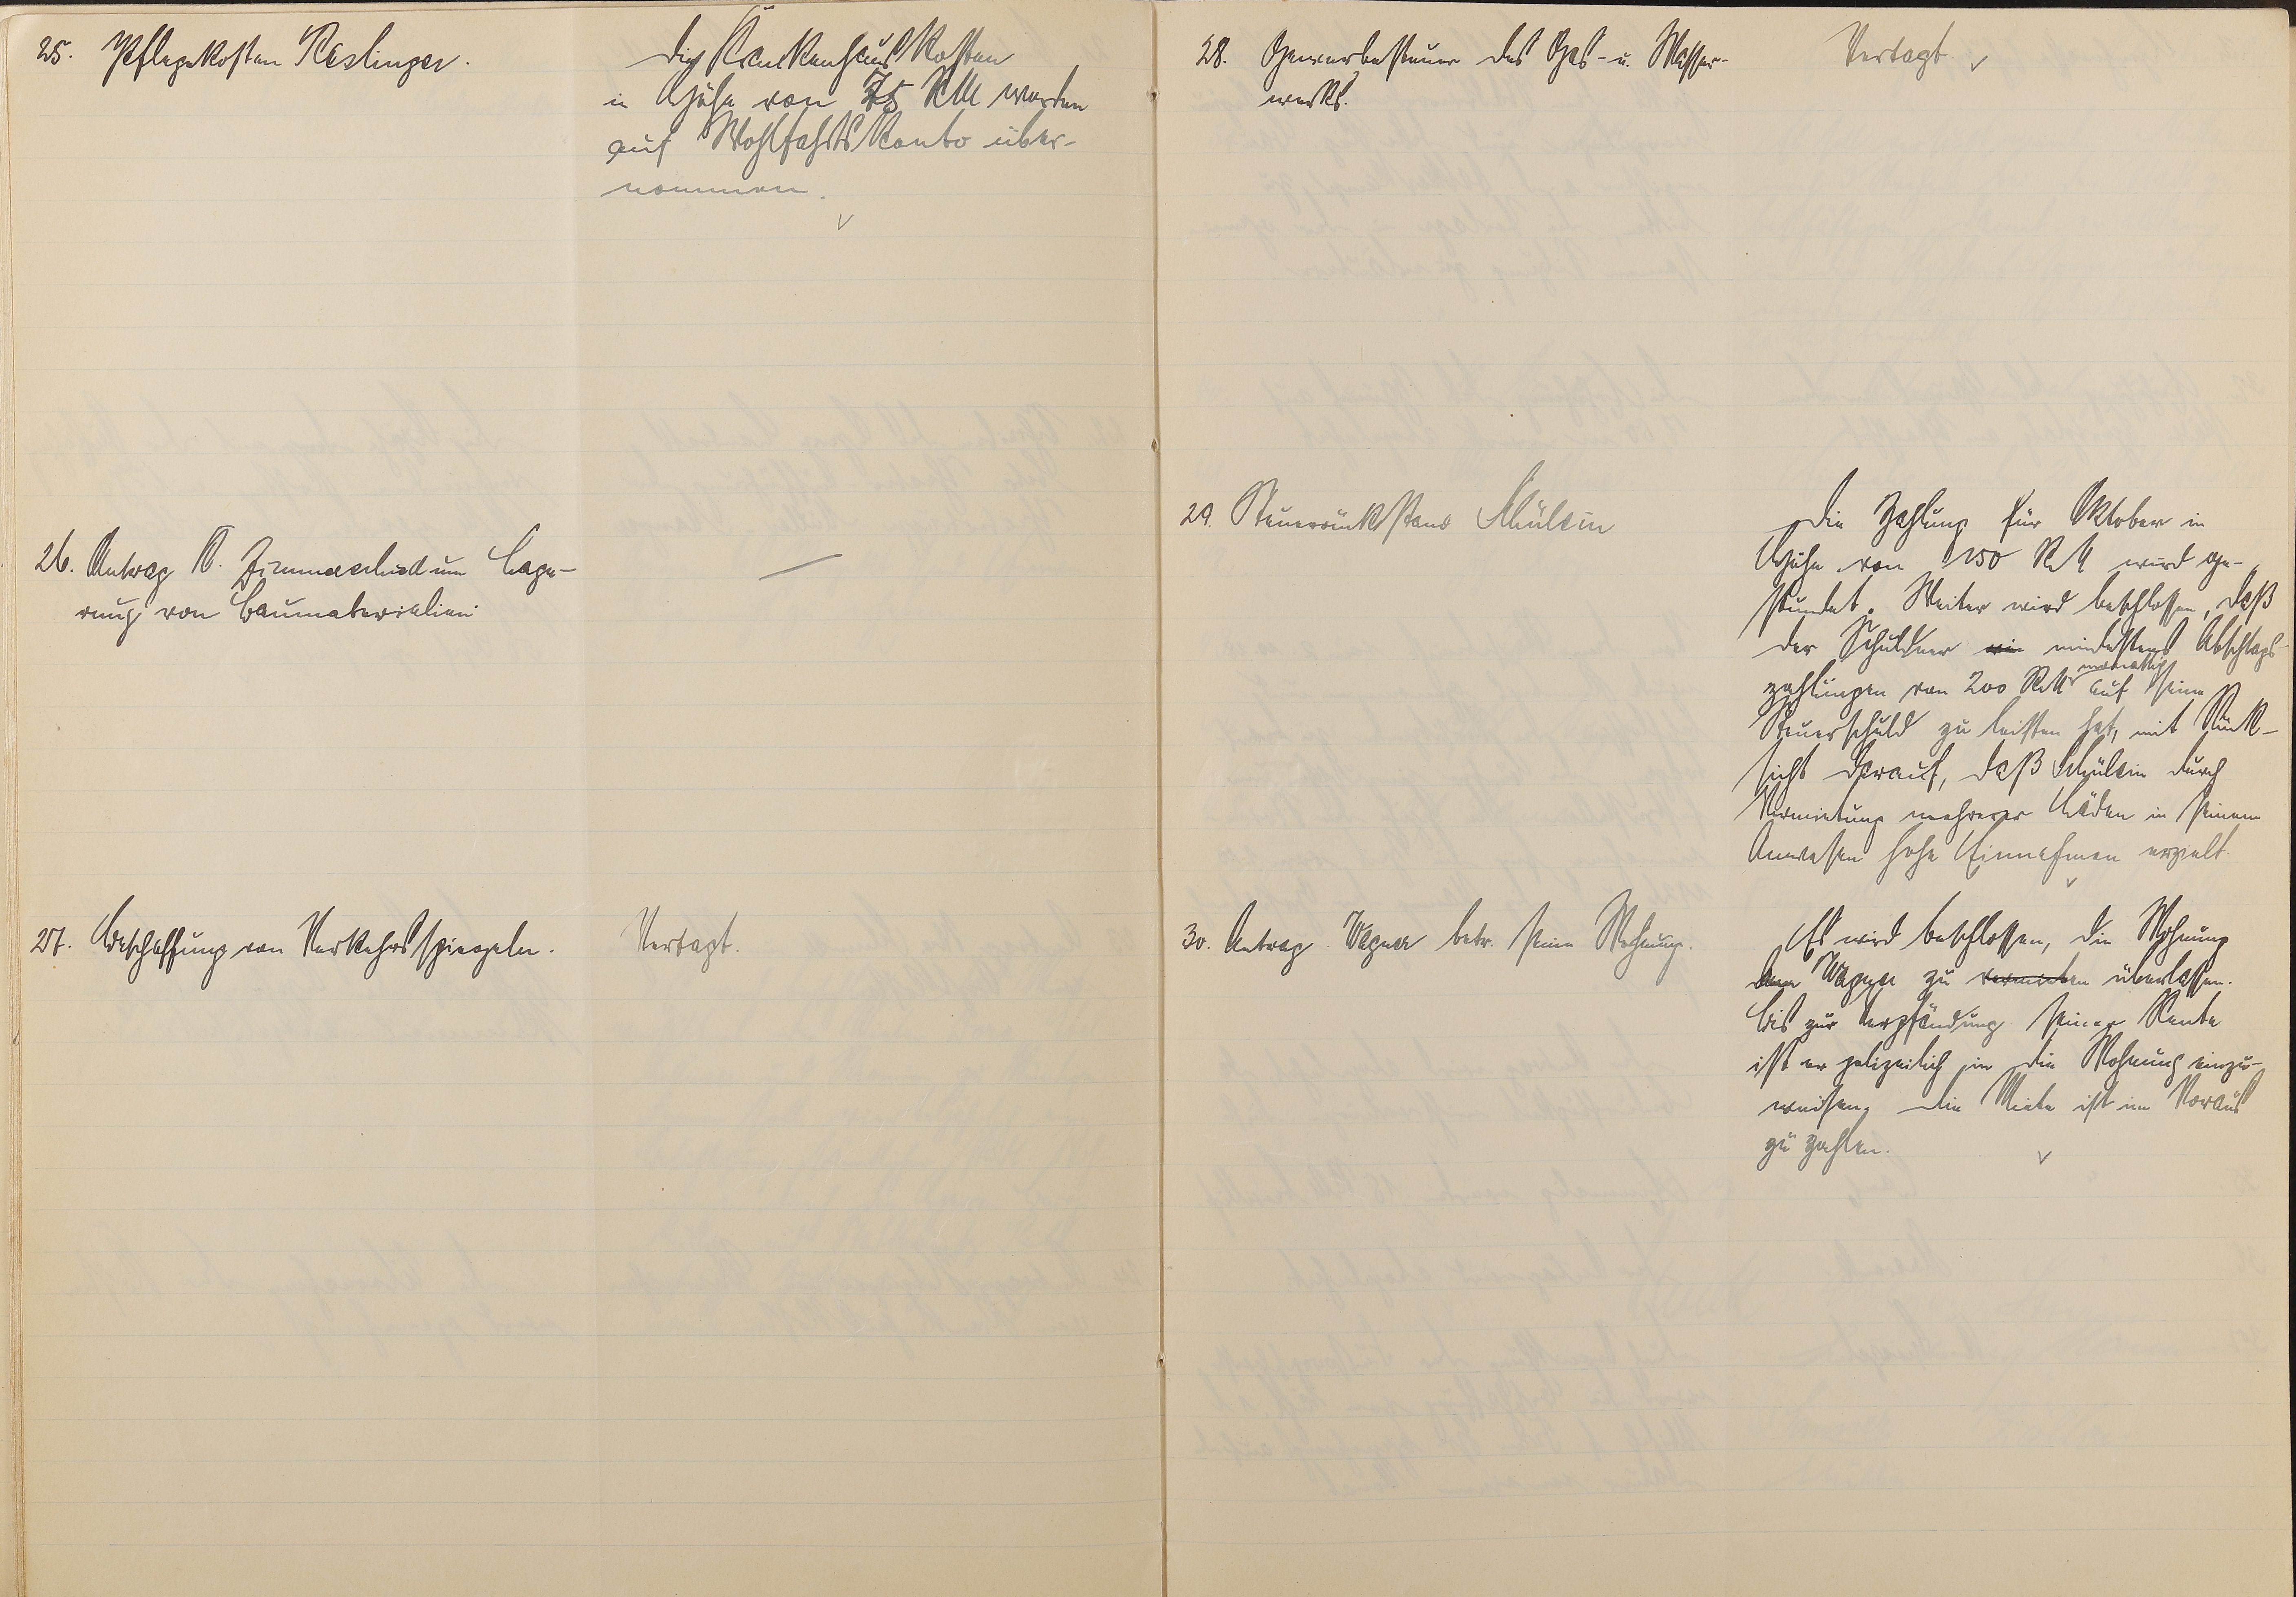 25. Pflegekosten Reslinger.
Die Krankenhauskosten
in Höhe von 75 RM werden
auf Wohlfahrtskonto über-
nommen.
26. Antrag A. Zimmerlied um Lage-
rung von Baumaterialien
27. Beschaffung von Verkehrsspiegeln.
Vertagt.
28. Gewerbesteuer des Gas- u. Wasser-
werks.
Vertagt.
29. Steuerrückstand Schülein
Die Zahlung für Oktober in
Höhe von 1250 RM wird ge-
stundet. Weiter wird beschlossen, daß
der Schuldner mindestens Abschlags-
zahlungen von 200 RM monatlich auf seine
Steuerschuld zu leisten hat, mit Rück-
sicht darauf, daß Schülein durch
Vermietung mehrerer Läden in seinem
Anwesen hohe Einnahmen erzielt.
30. Antrag Wagner betr. seine Wohnung.
Es wird beschlossen, die Wohnung
dem Wagner zu vermieten überlassen.
Bis zur Verpfändung seiner Rente
ist er polizeilich in die Wohnung einzu-
weisen. Die Miete ist im Voraus
zu zahlen.